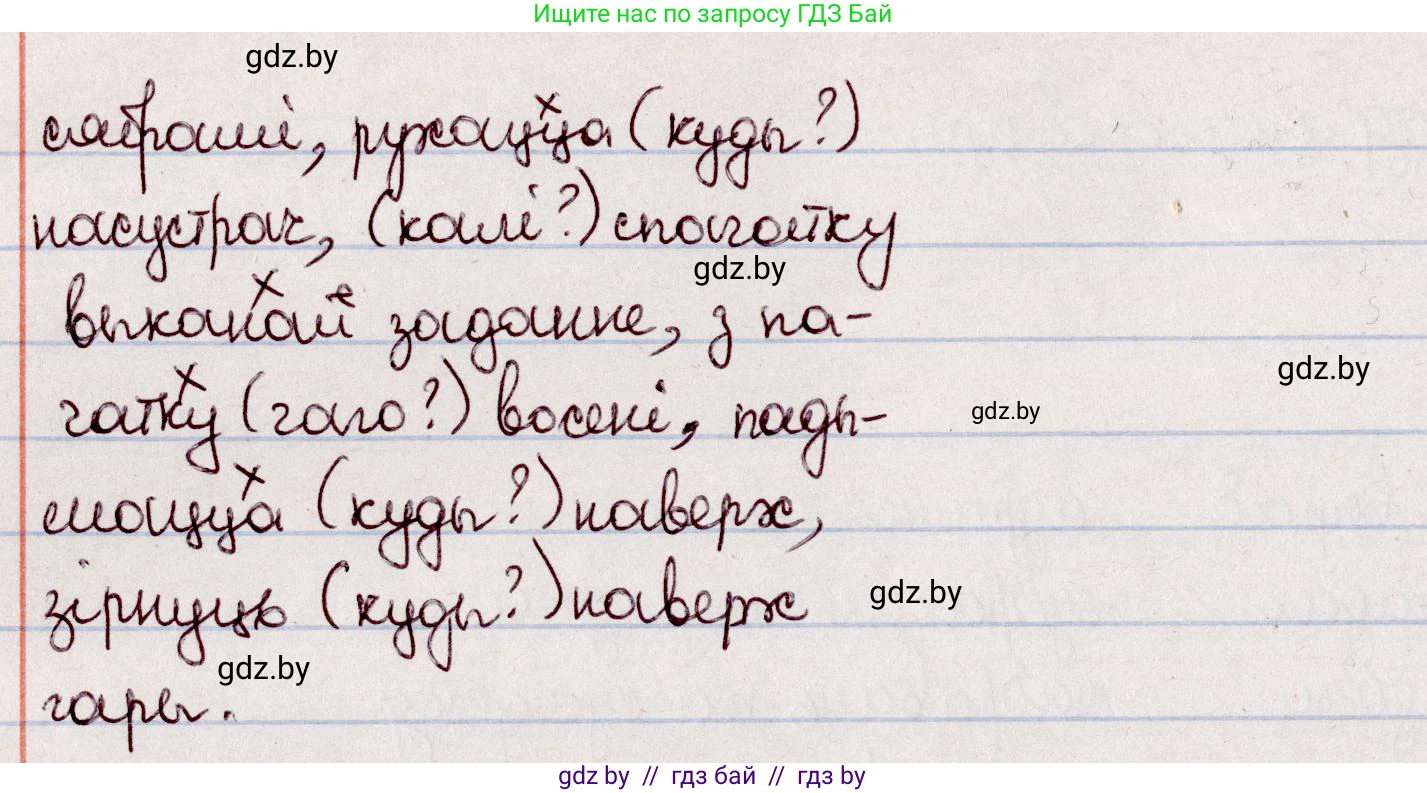 Ищите нас по запросу ГДЗ Бай
gdz.by
сябрамі, рухацца (куды?)
насустрач, (калі?) спачатку
gdz.by
выканай заданне, з па-
gdz.by
чатку (чаго?) восені, пады-
gdz.by
маецца (куды?) наверх,
зірнуць (куды?) наверх
gdz.by
gdz.by
гары.
gdz.by // гдз бай // гдз by